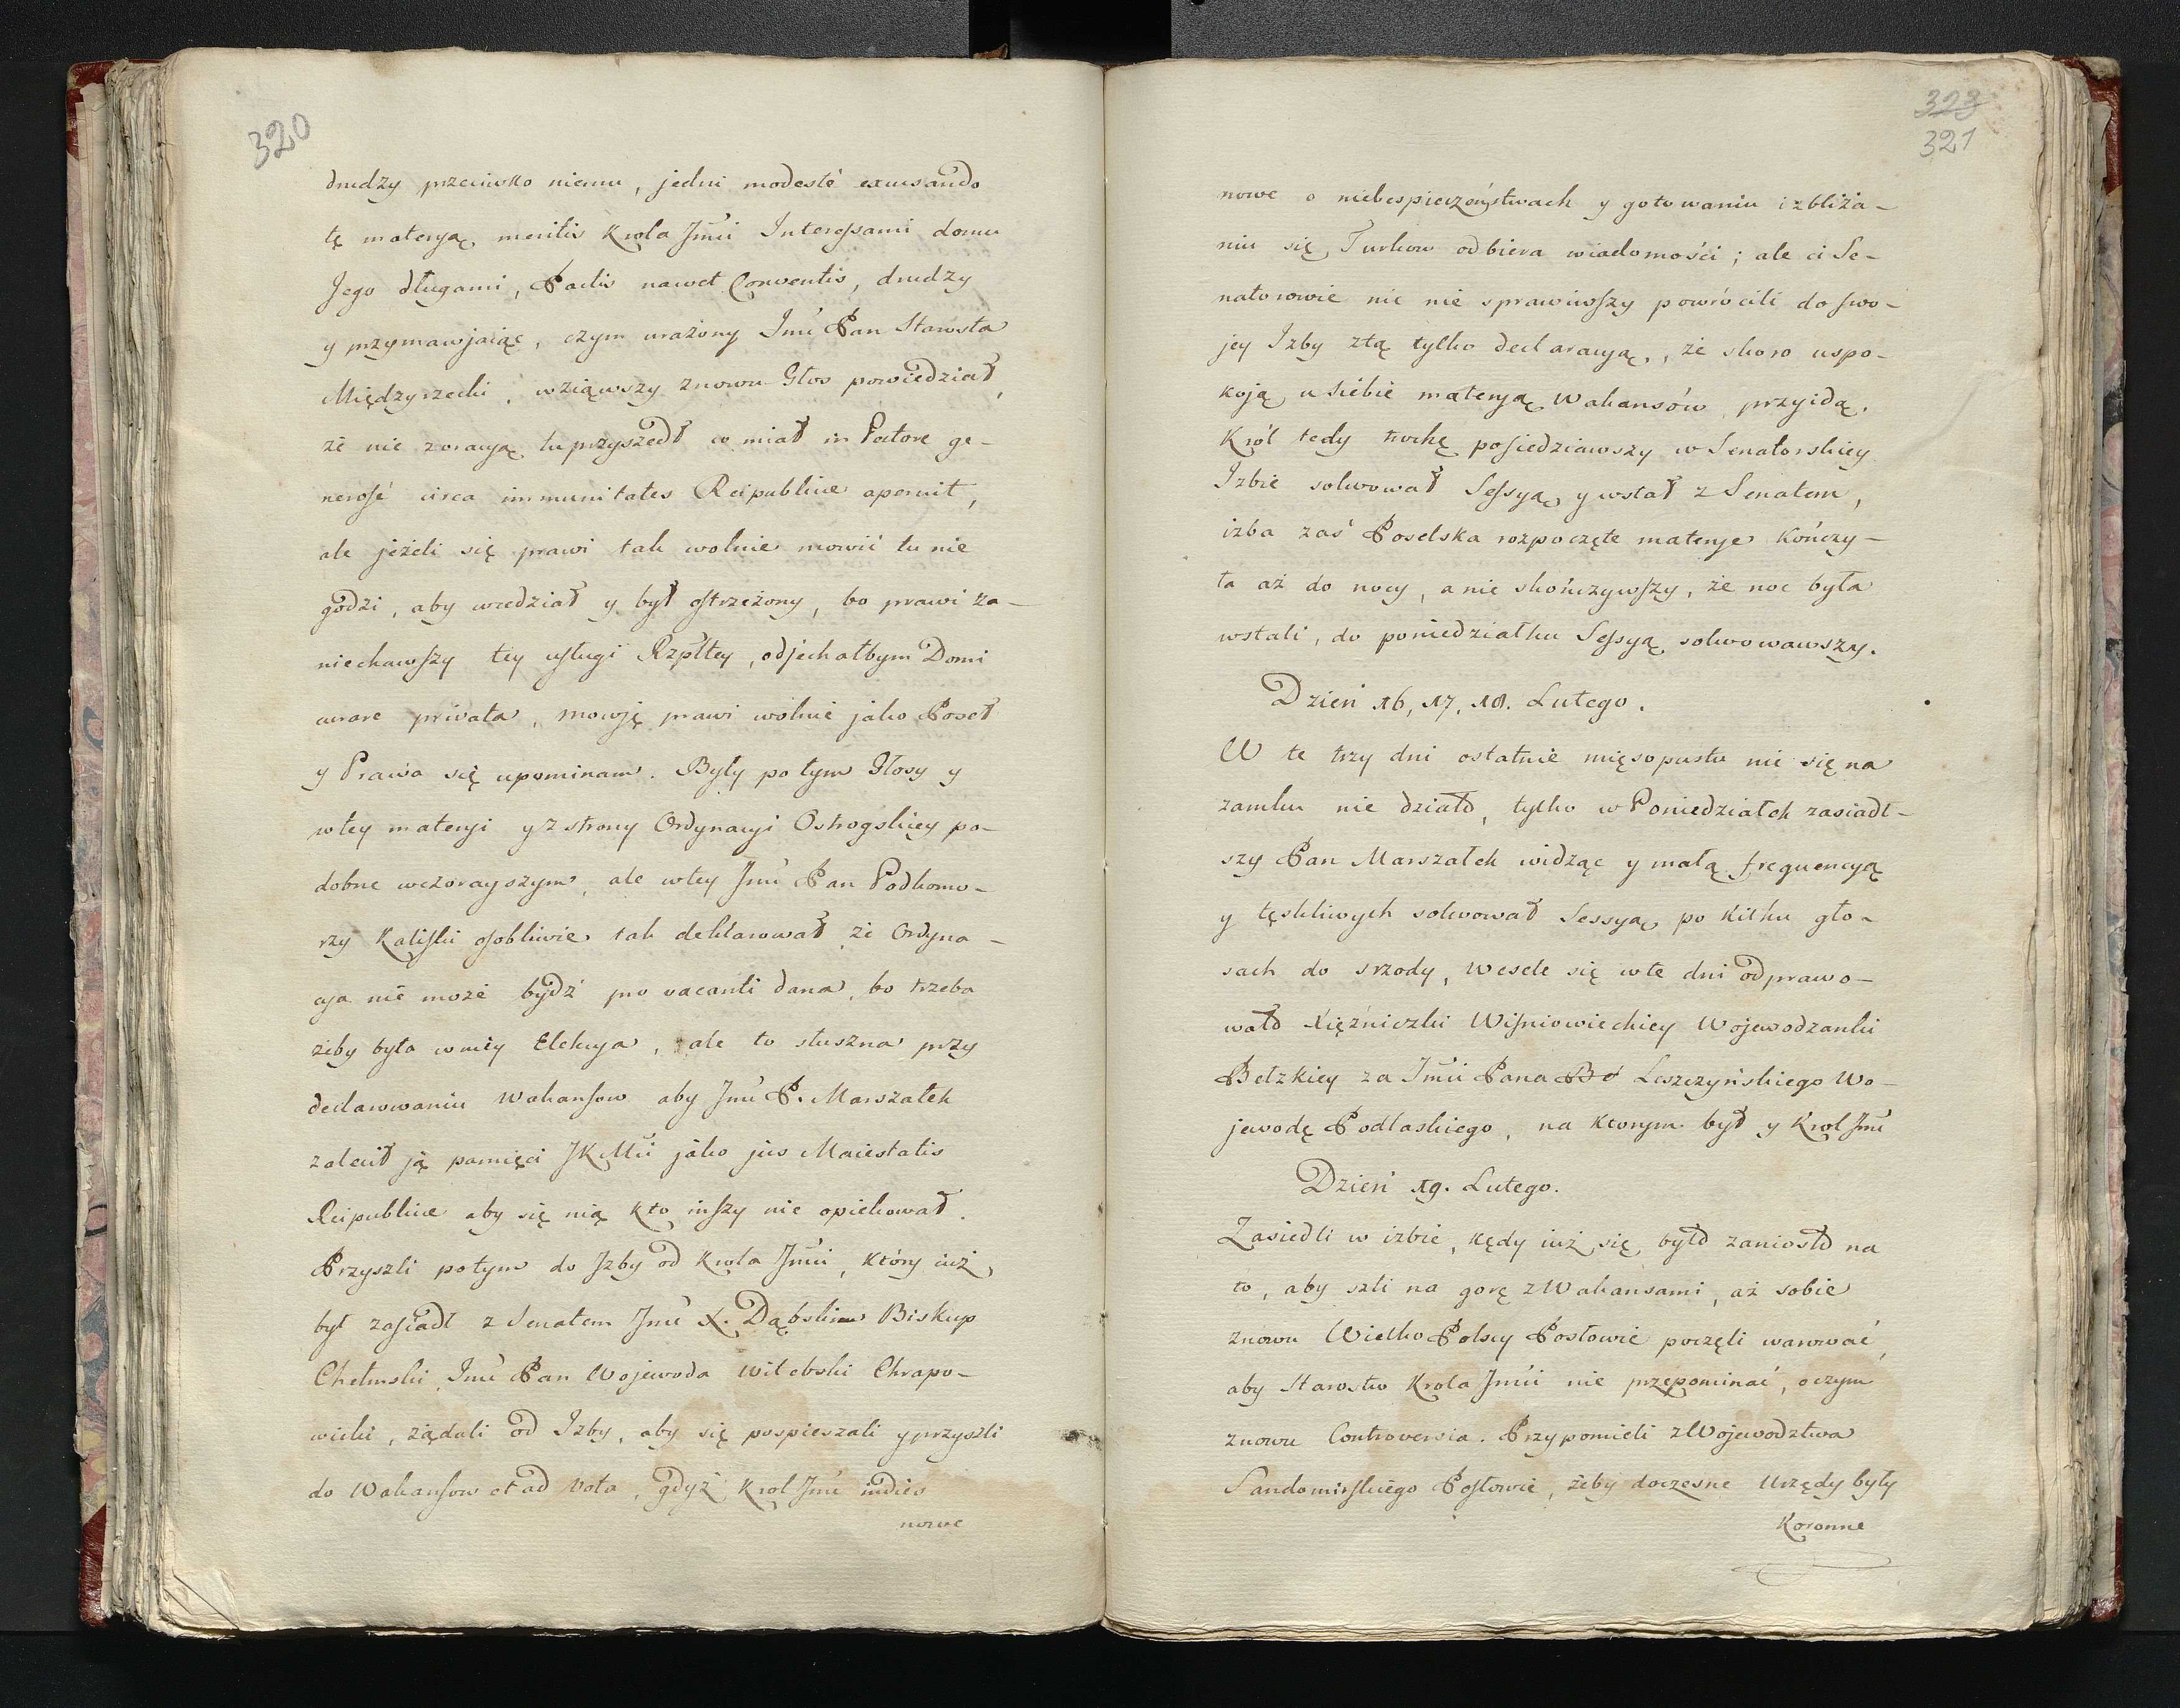 320
drudzy przeciwko niemu, jedni modesté excusando
tę materyą, meritis Krola Jmci Interessami domu
Jego długami, Pactis nawet Conventis, drudzy
y przymawjaiąc, czym urażony Jmć Pan Starosta
Międzyrzecki, wziąwszy znowu Głos powiedział,
że nie zoracyą tu przyszedł co miał in Pectore ge-
nerosé circa immunitates Reipublicæ aperuit,
ale jeżeli się prawi tak wolnie mowić tu nie
godzi, aby wiedział y był ostrzeżony, bo prawi za-
niechawszy tey usługi Rzpltey, odjechałbym Domi
curare privata, mowję prawi wolnie jako Poseł
y Prawa się upominam. Były potym Głosy y
wtey materyi y z strony Ordynacyi Ostrogskiey po-
dobne wczorayszym, ale wtey Jmć Pan Podkomo-
rzy Kaliski osobliwie tak deklarował, że Ordyna-
cya nie może bydź pro vacanti dana, bo trzeba
żeby była wniey Elekcya, ale to słuszna przy
declarowaniu Wakansow aby Jmć P. Marszałek
zalecił ją pamięci JKMci jako jus Maiestatis
Reipublicæ aby się nią kto inszy nie opiekował.
Przyszli potym do Jzby od Krola Jmci, który iuż
był zasiadł z Senatem Jmć X. Dąbski Biskup
Chełmski, Jmć Pan Wojewoda Witebski Chrapo-
wicki, żądali od Izby, aby się pospieszali y przyszli
do Wakansow et ad Vota, gdyż Krol Jmć indies
nowe
323
321
nowe o niebespieczeństwach y gotowaniu i zbliża-
niu się Turkow odbiera wiadomości; ale ci Se-
natorowie nic nie sprawiwszy powrócili do swo-
jey Izby z tą tylko declaracyą, że skoro uspo-
koją u siebie materyą Wakansów, przyidą.
Król tedy trochę posiedziawszy w Senatorskiey
Izbie solwował Sessyą y wstał z Senatem,
izba zaś Poselska rozpoczęte materye kończy-
ła aż do nocy, a nie skończywszy, że noc była
wstali, do poniedziałku Sessyą solwowawszy.
Dzień 16, 17, 18. Lutego.
W te trzy dni ostatnie mięsopustu nic się na
zamku nie działo, tylko w Poniedziałek zasiadł-
szy Pan Marszałek widząc y małą frequencyą
y tęskliwych solwował Sessyą po kilku gło-
sach do srzody, Wesele się w te dni odprawo-
wało Xiężniczki Wisniowieckiey Wojewodzanki
Bełzkiey za Jmci Pana Bo Leszczyńskiego Wo-
jewodę Podlaskiego, na ktorym był y Krol Jmć
Dzień 19. Lutego.
Zasiedli w izbie, kędy iuż się było zaniosło na
to, aby szli na gorę z Wakansami, aż sobie
znowu Wielko Polscy Posłowie poczęli warować,
aby Starostw Krola Jmci nie przepominać, o czym
znowu Controversia. Przypomieli z Wojewodztwa
Sandomirskiego Posłowie, żeby doczesne Urzędy były
Koronne